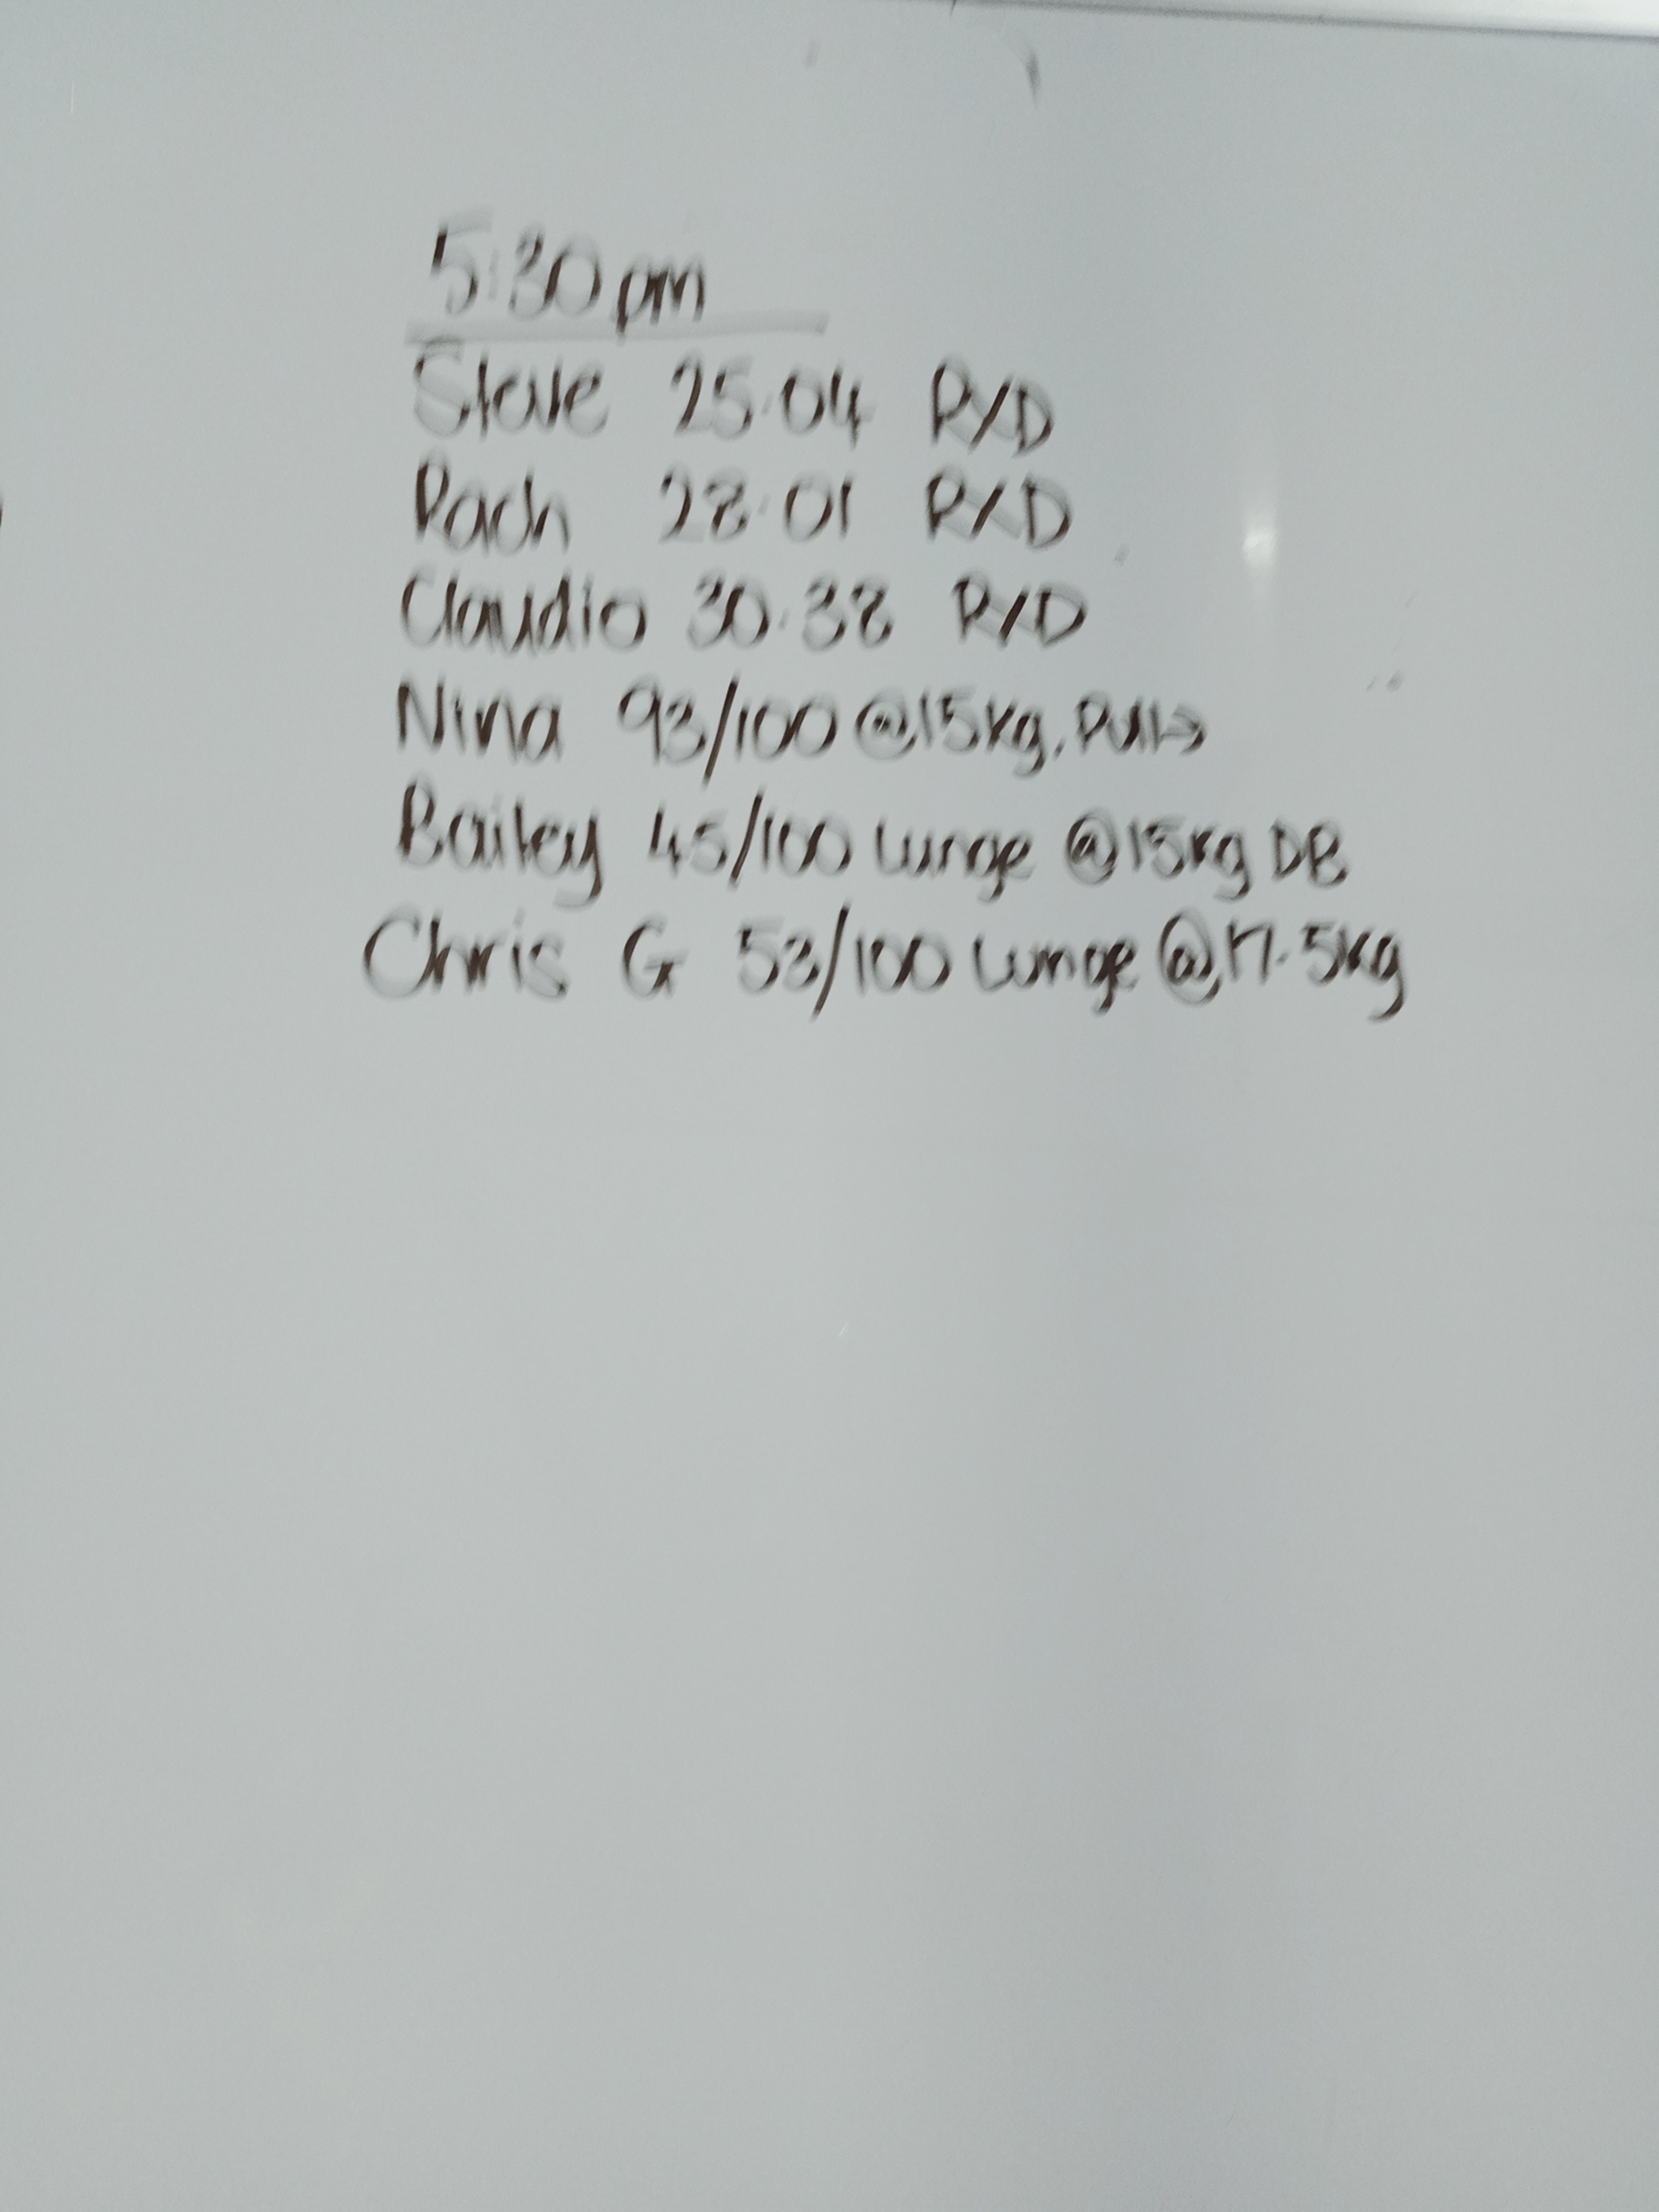 5:30pm
Steve 25.04 R/D
Rach 28.01 R/D
Claudio 30.38 R/D
Nina 93/100 @15kg. Pull→
Bailey 45/100 Lunge @15kg DB
Chris G 53/100 Lunge @17.5kg